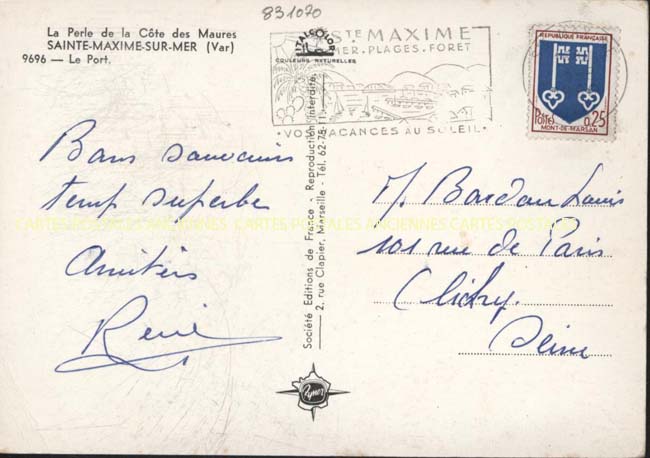 831070
La Perle de la Côte des Maures
SAINTE-MAXIME-SUR-MER (Var)
9696 — Le Port.
ITALCOLOR
COULEURS NATURELLES
STE MAXIME
MER.PLAGES.FORET
•VOS VACANCES AU SOLEIL•
REPUBLIQUE FRANÇAISE
Postes 0,25
MONT-DE-MARSAN
Bons souvenirs
temp superbe
Amitiés
René
Société Editions de France - Reproduction interdite.
2, rue Clapier, Marseille - Tél. 62-78-1
M. Bardou Louis
101 rue de Paris
Clichy.
Seine
CARTES POSTALES ANCIENNES CARTES POSTALES ANCIENNES CARTES POSTALES